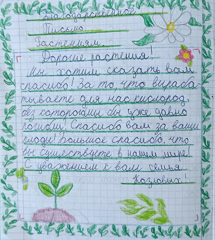 Благодарственное
Письмо
Растениям.
Дорогие растения!
Мы хотим сказать вам
спасибо! За то что выраба
тываете для нас кислород,
без которого мы уже давно
погибли! Спасибо вам за ваши
плоды! Большое спасибо, что
вы существуете в нашем мире!
С уважением к вам семья
Козловых!